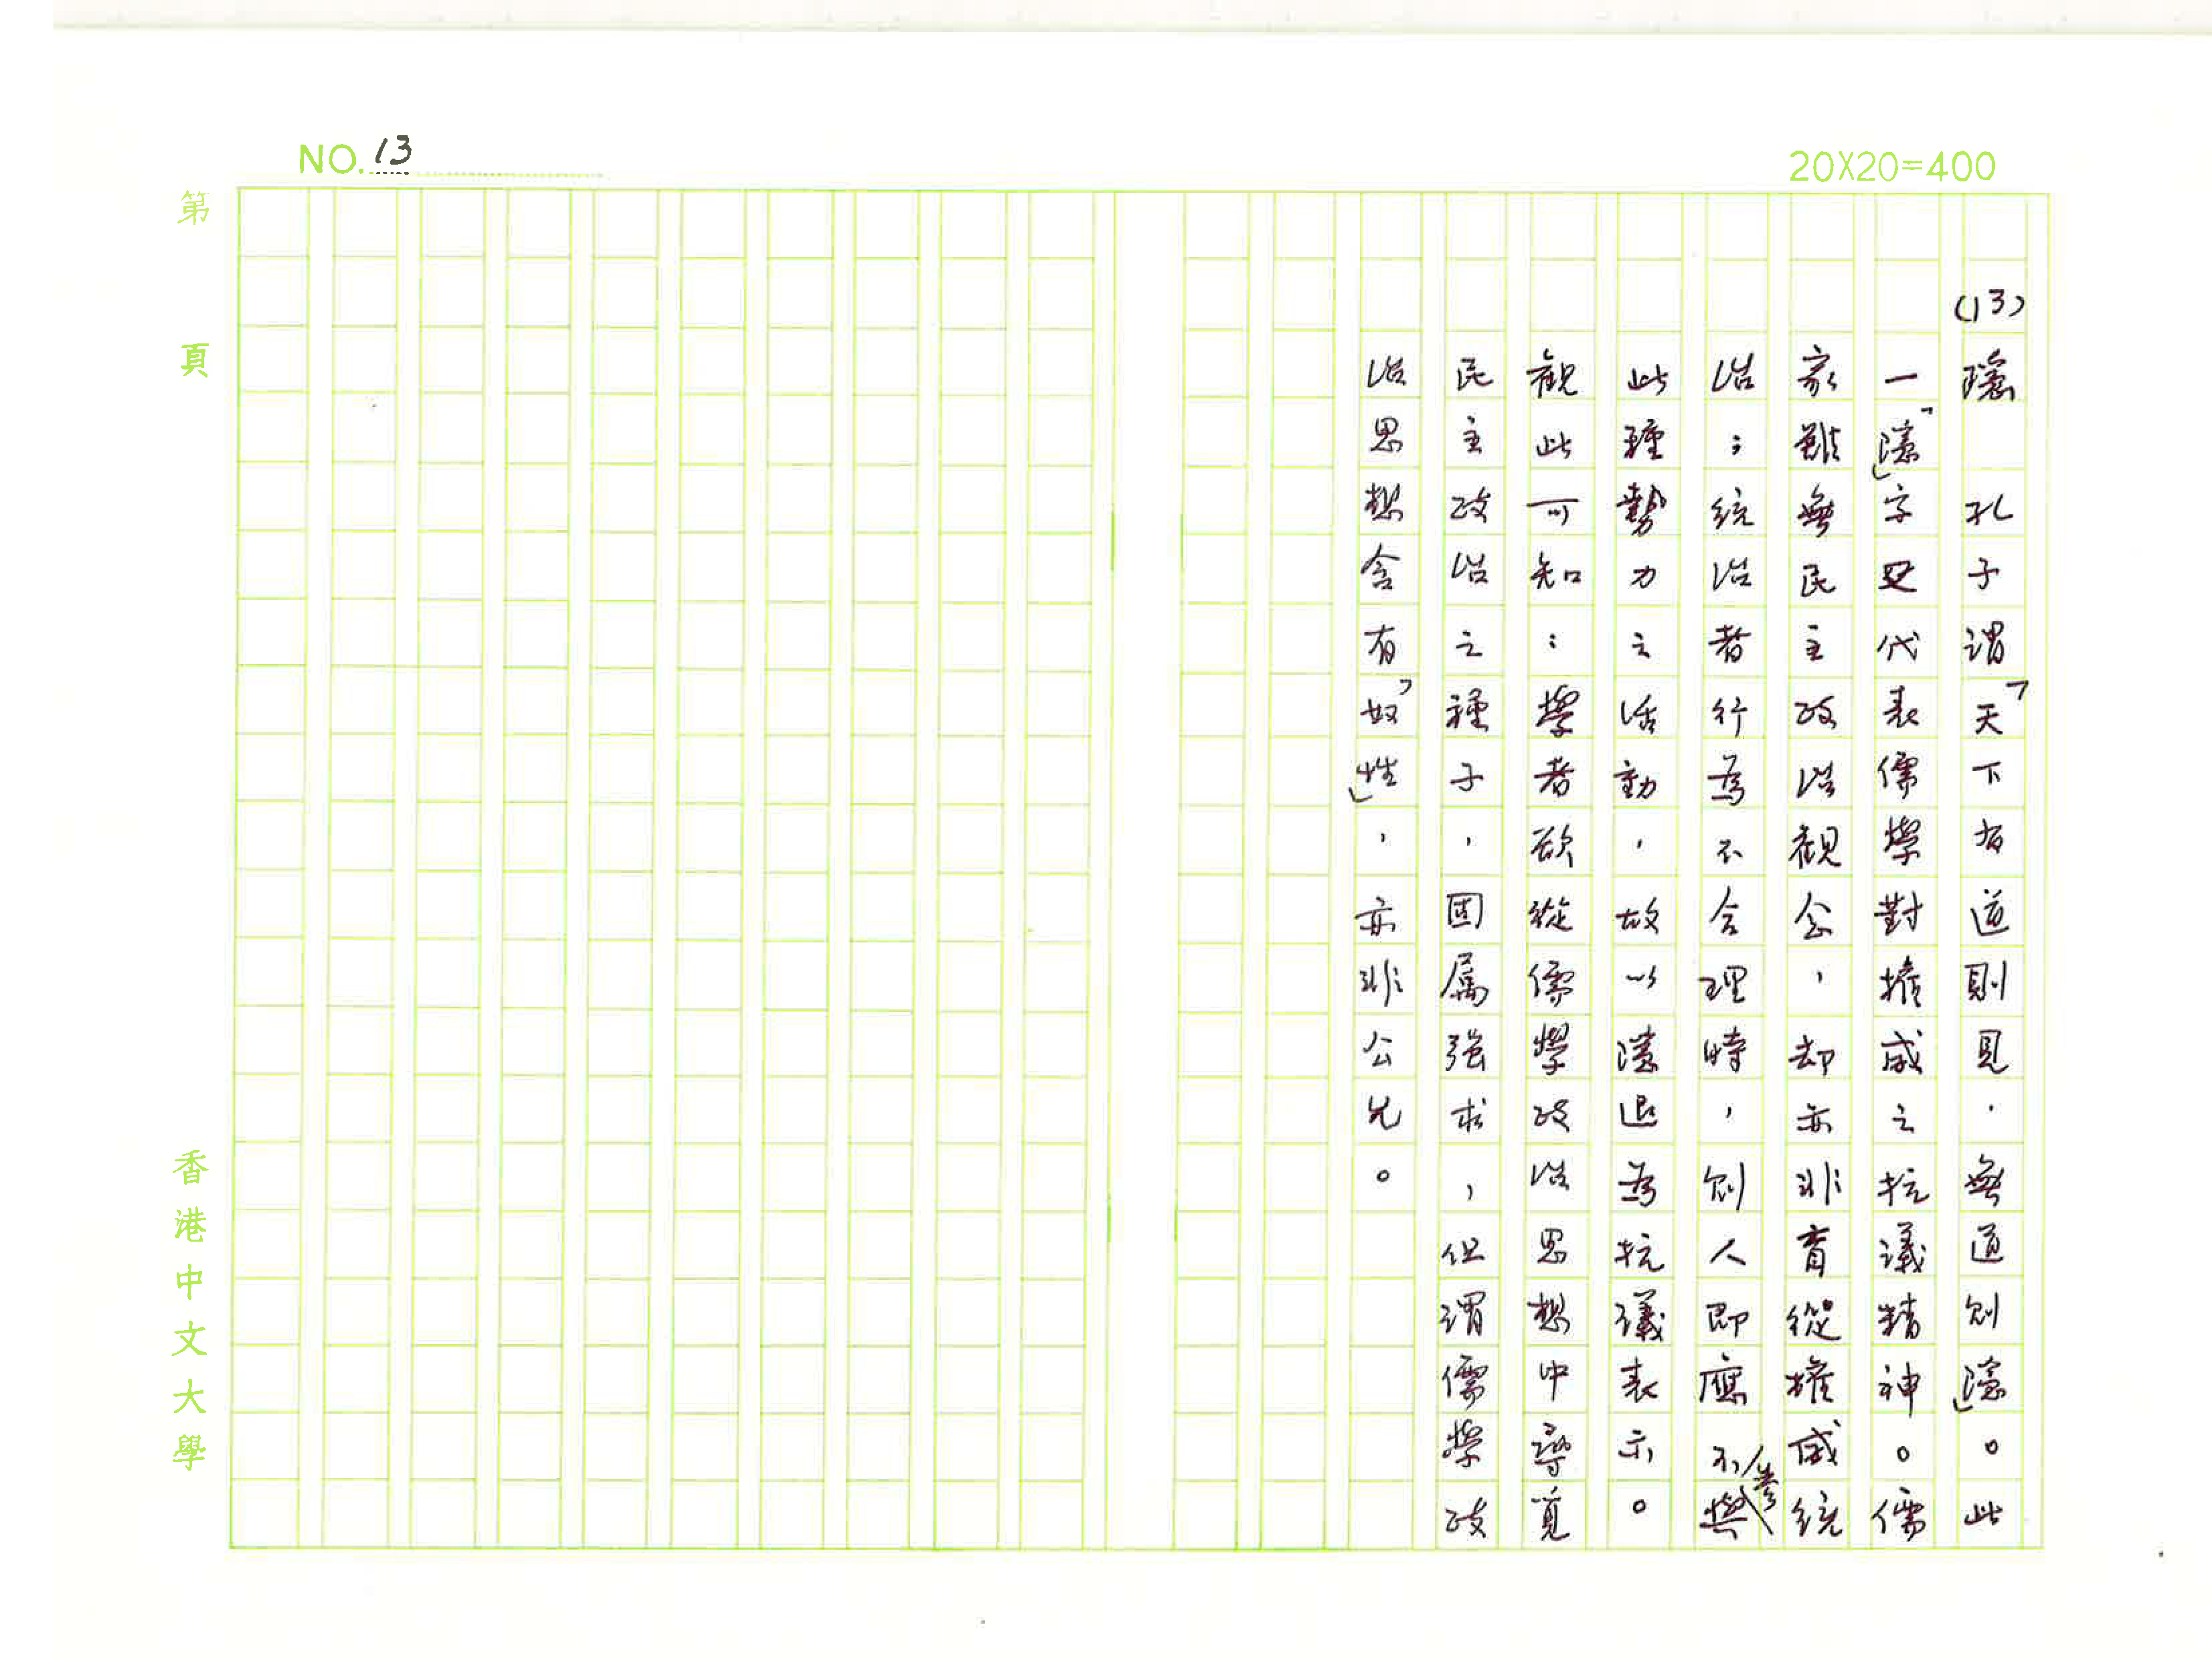 NO. 13
20X20=400
(13)
隱 孔子謂「天下有道則見，無道則隱」。此
一「隱」字更代表儒學對權威之抗議精神。儒
家雖無民主政治觀念，却亦非盲從權威統
治；統治者行為不合理時，則人即應不參與
此種勢力之活動，故以隱退為抗議表示。
觀此可知：學者欲從儒學政治思想中尋覓
民主政治之種子，固屬強求，但謂儒學政
治思想含有「奴性」，亦非公允。
第 頁
香港中文大學